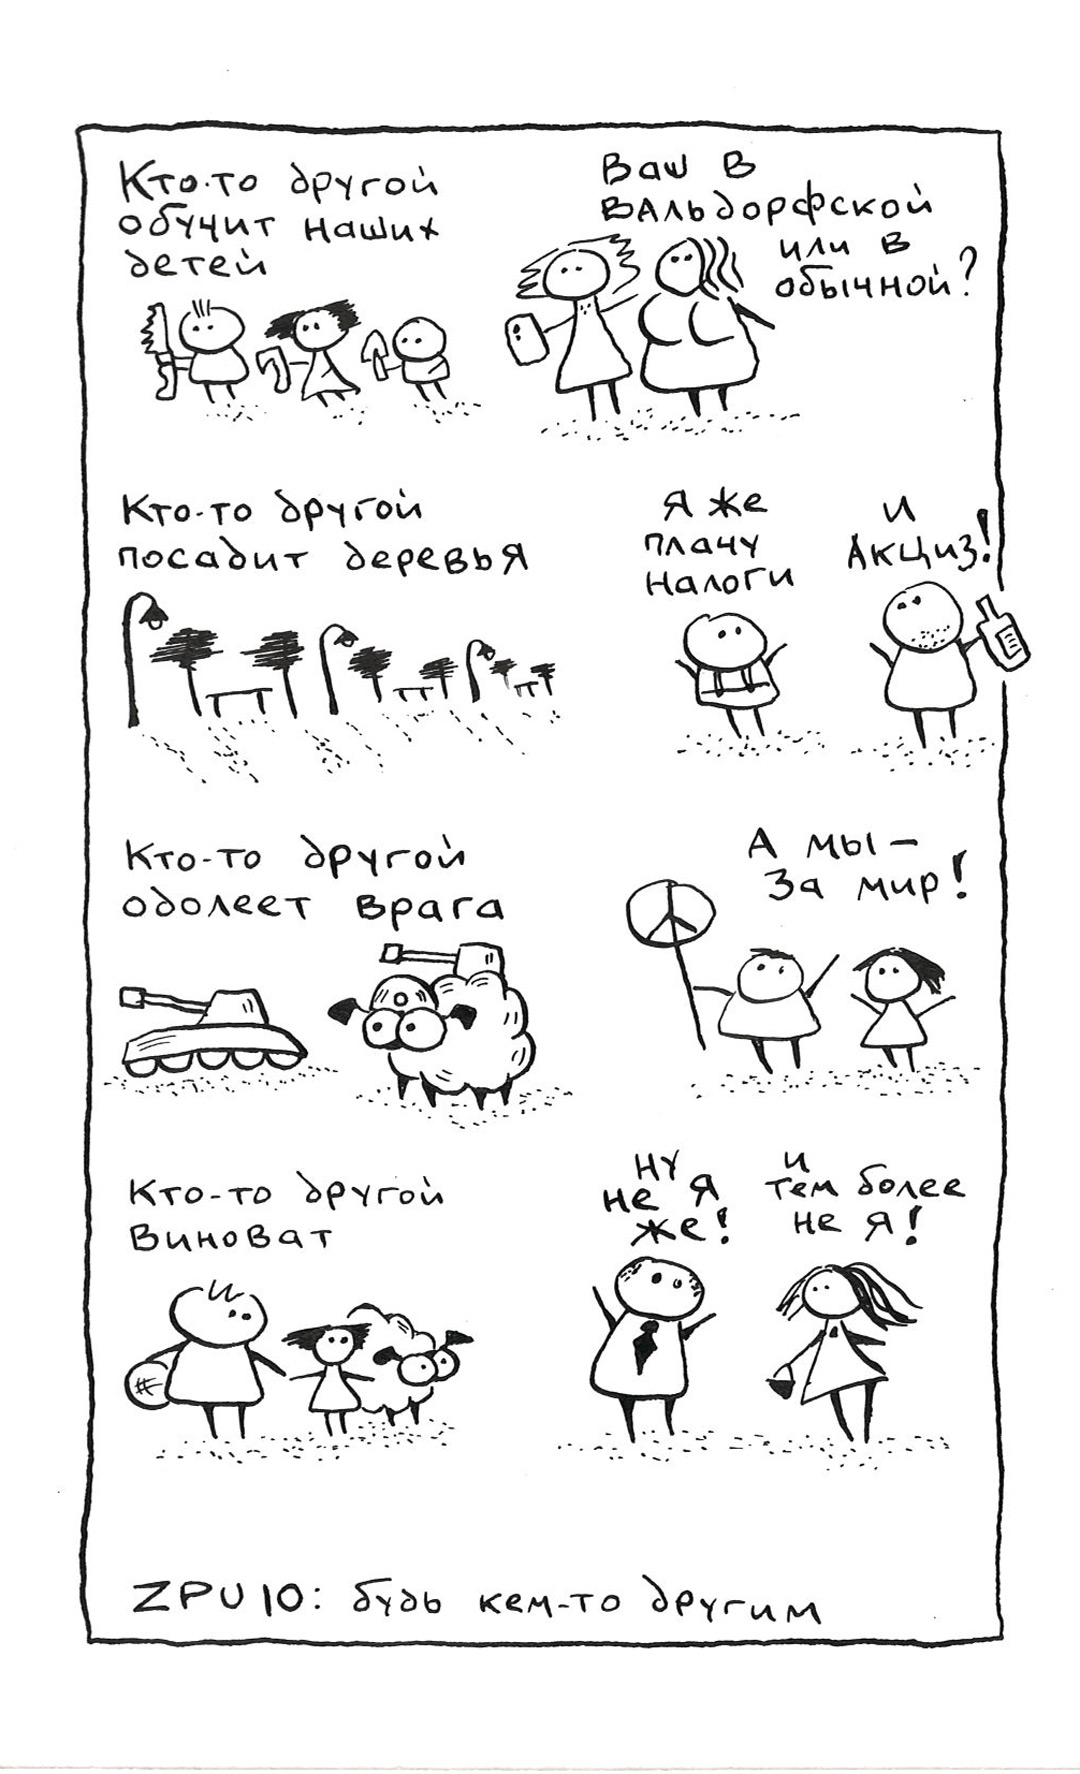 Кто-то другой
обучит наших
детей
Ваш в
вальдорфской
или в
обычной?
Кто-то другой
посадит деревья
Я же
плачу
налоги
И
Акциз!
Кто-то другой
одолеет врага
А мы —
за мир!
Кто-то другой
виноват
ну
не я
же!
и
тем более
не я!
ZPU10: будь кем-то другим